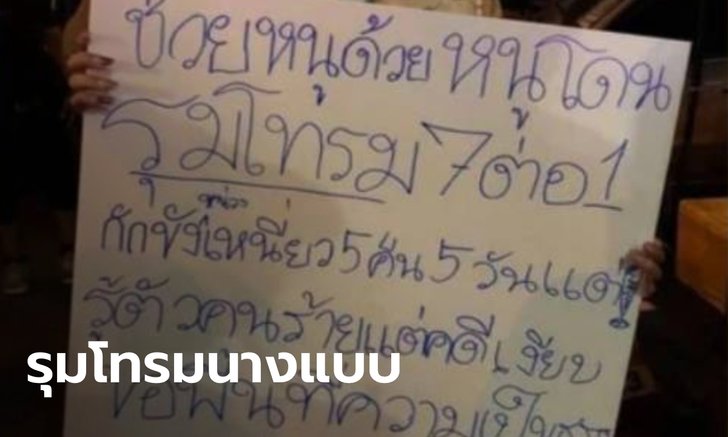 ช่วยหนูด้วย หนูโดน
รุมโทรม 7 ต่อ 1
หน่วง
กักขังเหนี่ยว 5 คืน 5 วัน แต่
รู้ตัวคนร้ายแต่คดีเงียบ
รุมโทรมนางแบบ
ขอพื้นที่ความเป็นธรรม